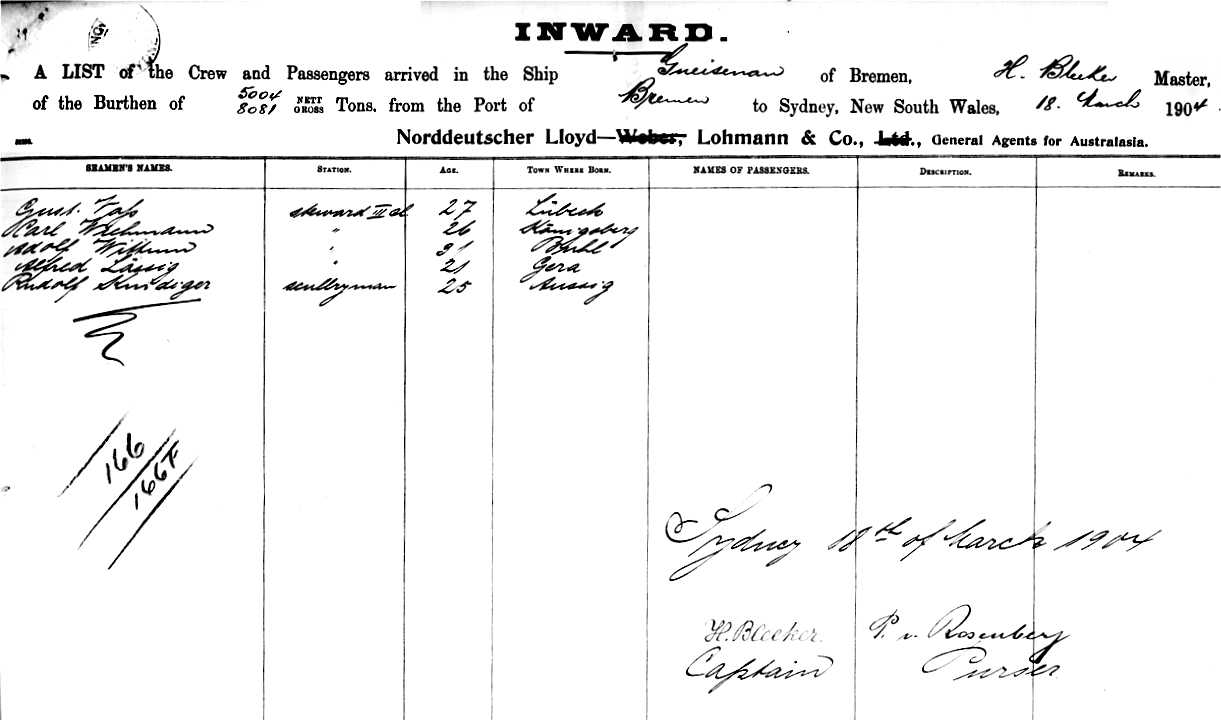 INWARD.
A LIST of the Crew and Passengers arrived in the Ship Gneisenau of Bremen, H. Bleeker Master,
of the Burthen of 5004 8081 NETT GROSS Tons, from the Port of Bremen to Sydney, New South Wales, 18. March 1904
Norddeutscher Lloyd—Weber, Lohmann & Co., Ltd., General Agents for Australasia.
SEAMEN'S NAMES. STATION. AGE. TOWN WHERE BORN. NAMES OF PASSENGERS. DESCRIPTION. REMARKS.
Gust. Voß steward III cl 27 Lübeck
Karl Wichmann " 26 Königsberg
Adolf " 31 Bühl
Alfred Lässig " 21 Gera
Rudolf scullryman 25 Aussig
166
166+
Sydney 18th of March 1904
H. Bleeker. P. v. Rosenberg
Captain Purser